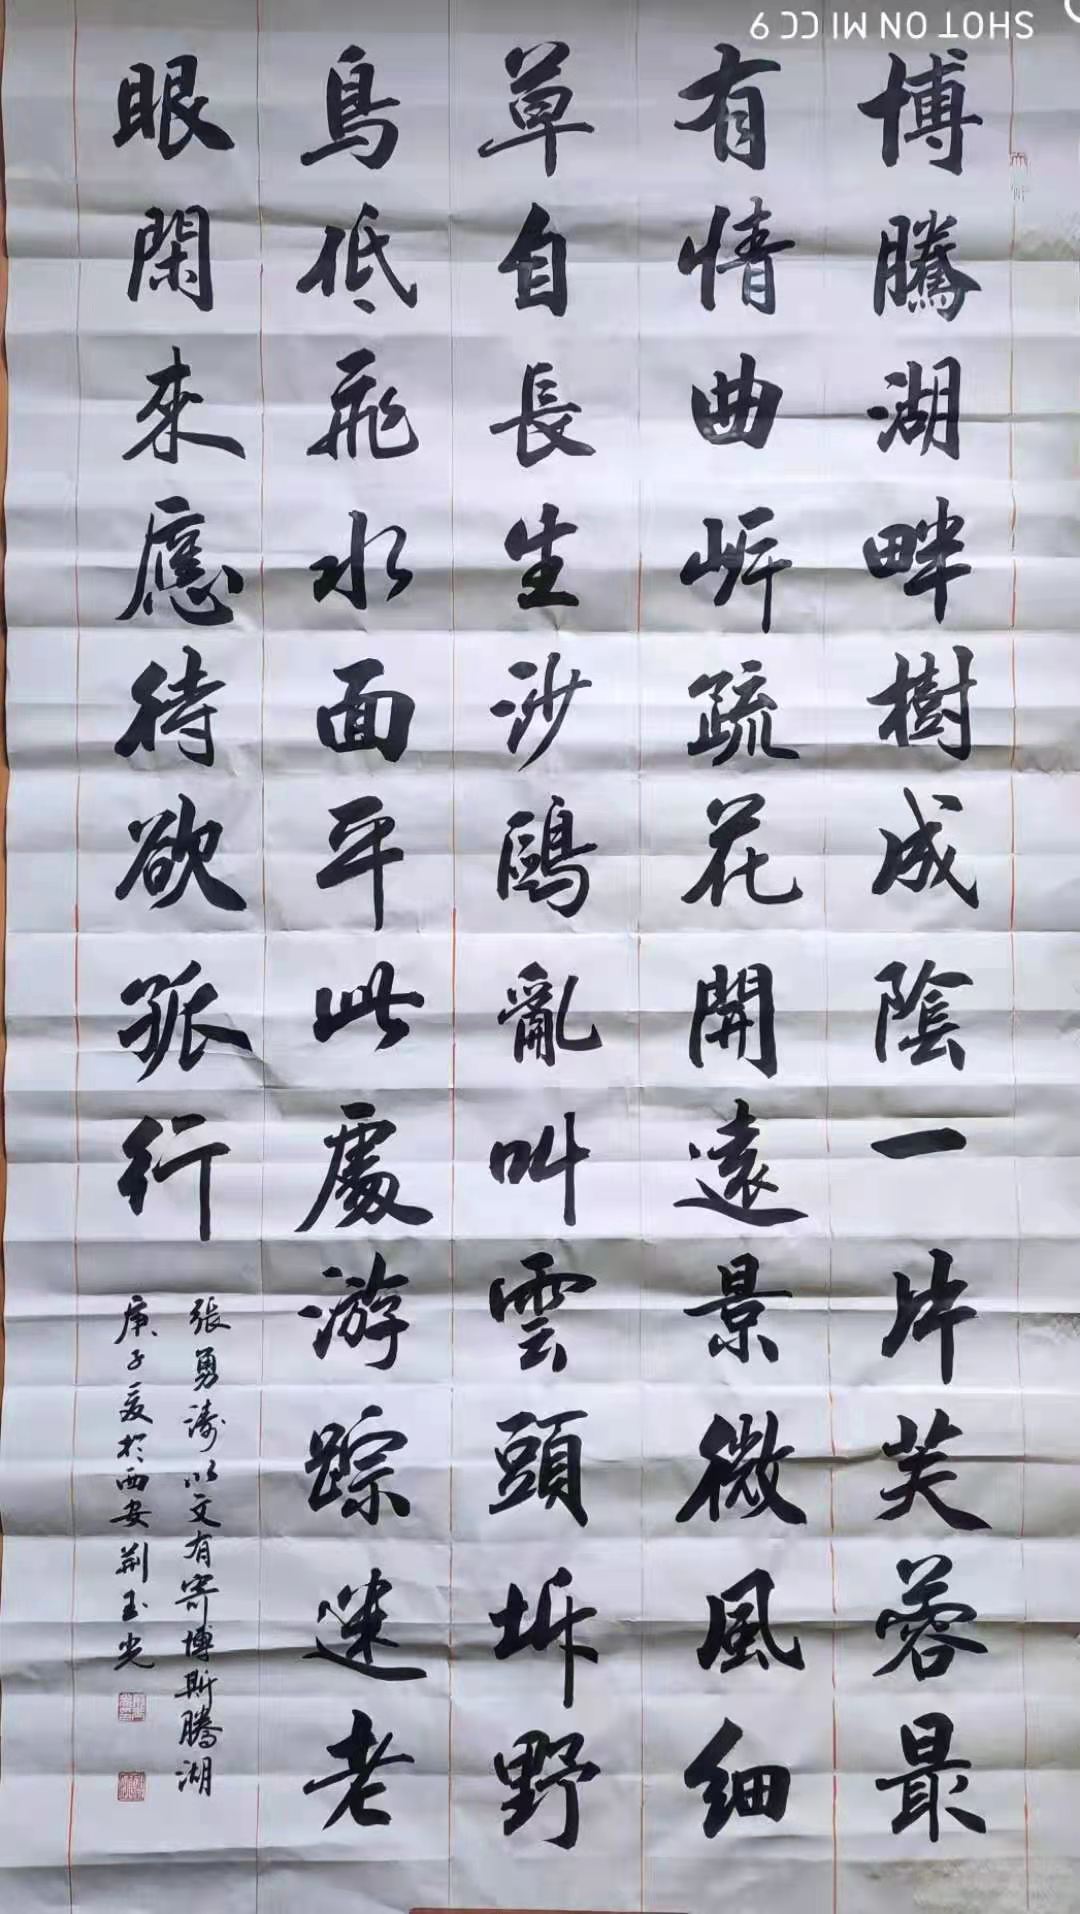 博騰湖畔樹成陰一片芙蓉最
有情曲岸疏花開遠景微風細
草自長生沙鷗亂叫雲頭坼野
鳥低飛水面平此處游踪迷老
眼閑來應待欲孤行
張勇濤以文有寄博斯騰湖
庚子夏於西安荆玉光
SHOT ON MI CC 9